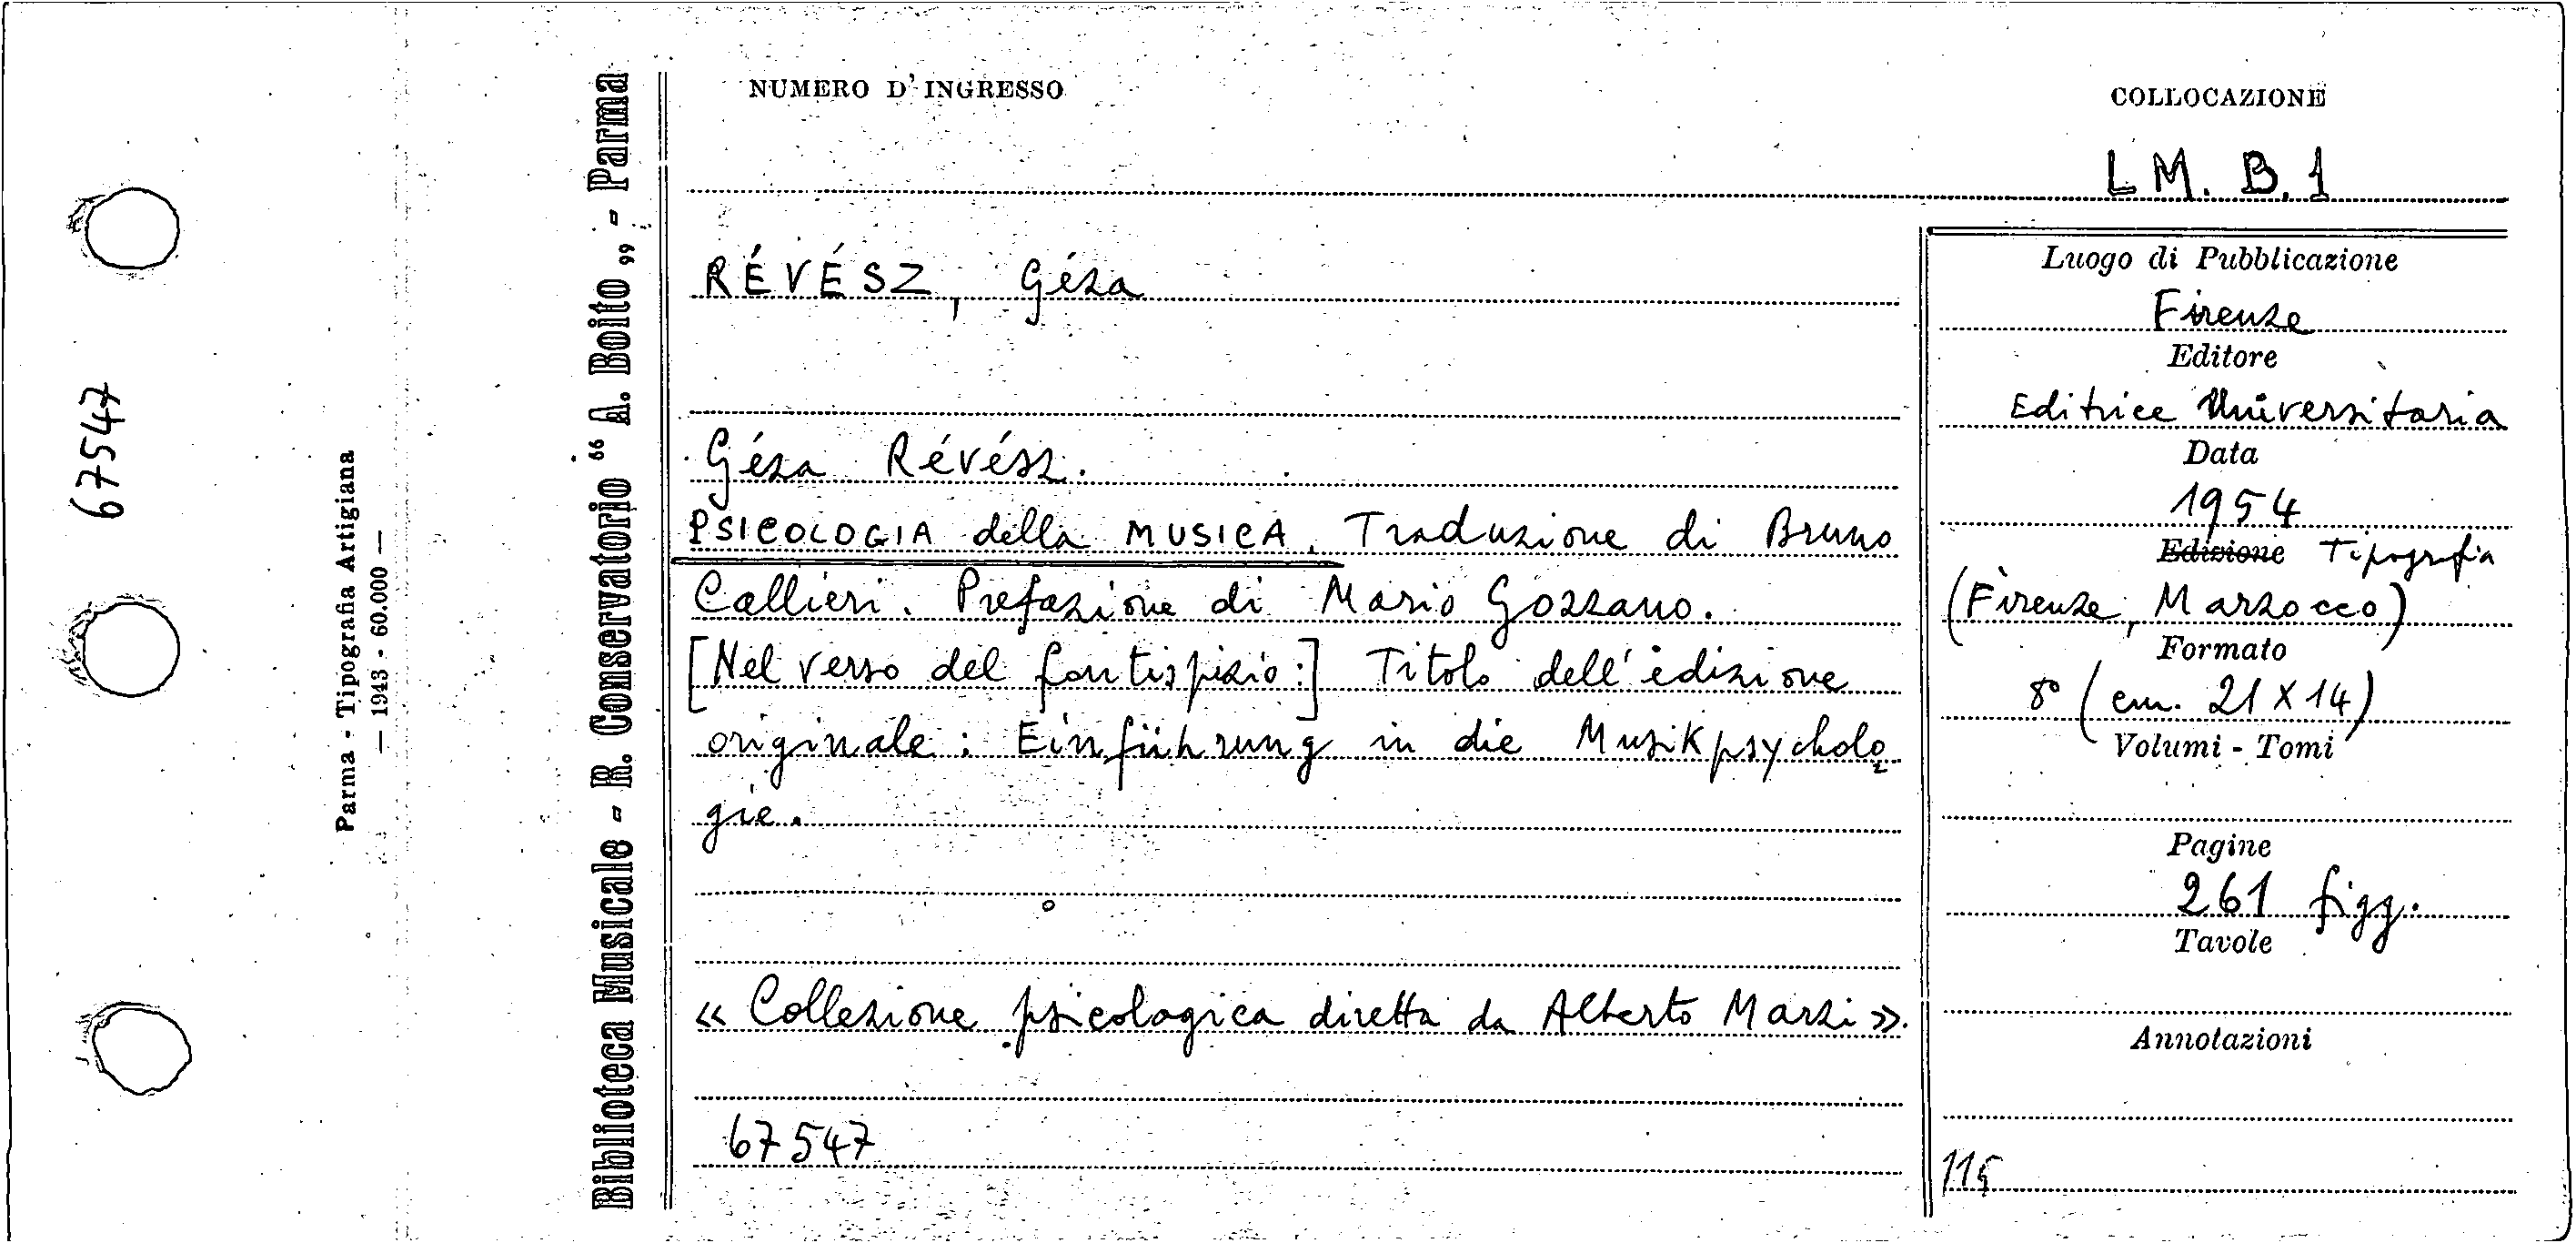 67547
Parma - Tipografia Artigiana
— 1943 - 60.000 —
Biblioteca Musicale - R. Conservatorio “ A. Boito „ - Parma
NUMERO D'INGRESSO
COLLOCAZIONE
LM. B. 1
RÉVÉSZ, Géza
Géza Révész.
PSICOLOGIA della MUSICA. Traduzione di Bruno
Callieri. Prefazione di Mario Gozzano.
[Nel verso del fontispizio:] Titolo dell'edizione
originale: Einführung in die Musikpsycholo
gie.
« Collezione psicologica diretta da Alberto Marzi ».
67547
Luogo di Pubblicazione
Firenze
Editore
Editrice Universitaria
Data
1954
Edizione Tipografia
(Firenze, Marzocco)
Formato
8° (cm. 21 X 14)
Volumi - Tomi
Pagine
261 figg.
Tavole
Annotazioni